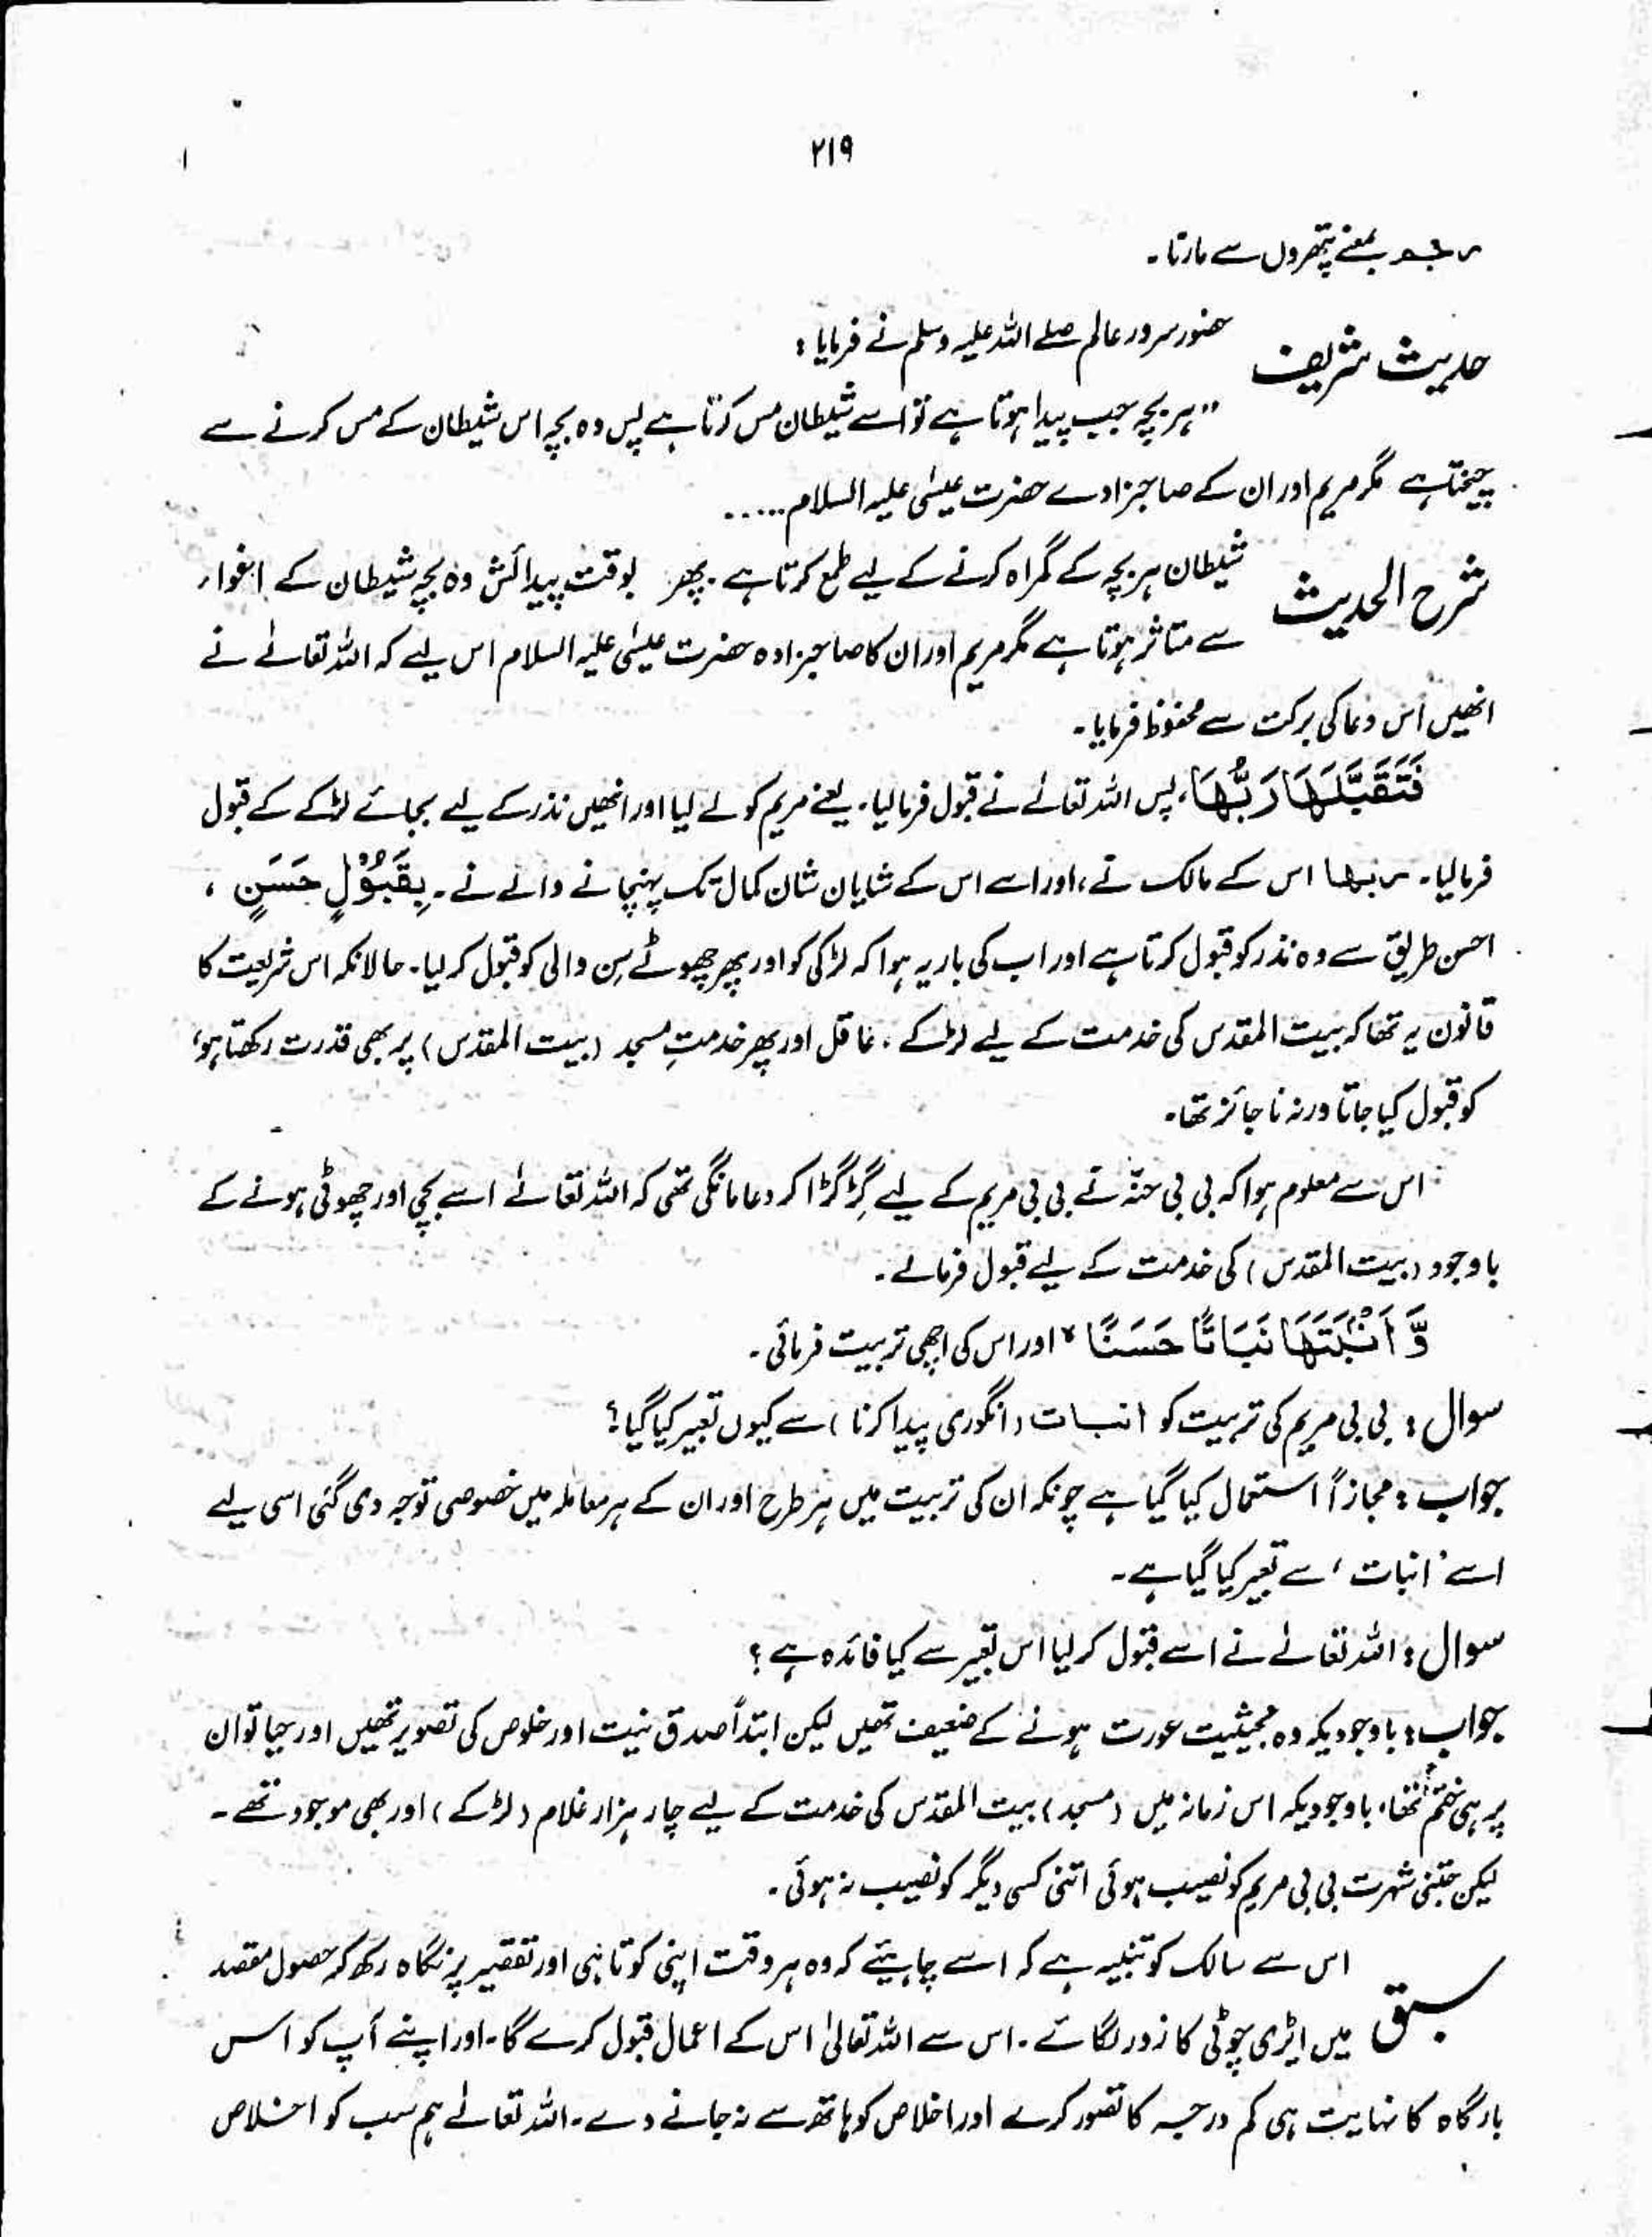 ۲۱۹
رجم بمعنے پتھروں سے مارنا۔
حدیث شریف حضور سرور عالم صلے اللہ علیہ وسلم نے فرمایا :
"ہر بچہ جب پیدا ہوتا ہے تو اسے شیطان مس کرتا ہے پس وہ بچہ اس شیطان کے مس کرنے سے
چیختا ہے مگر مریم اور ان کے صاحبزادے حضرت عیسٰی علیہ السلام .....
شرح الحدیث شیطان ہر بچہ کے گمراہ کرنے کے لیے طمع کرتا ہے۔ پھر بوقت پیدائش وہ بچہ شیطان کے اغواء
سے متاثر ہوتا ہے مگر مریم اور ان کا صاحبزادہ حضرت عیسٰی علیہ السلام اس لیے کہ اللہ تعالےٰ نے
انھیں اس دعا کی برکت سے محفوظ فرمایا۔
فَتَقَبَّلَهَا رَبُّهَا، پس اللہ تعالےٰ نے قبول فرمالیا۔ یعنے مریم کو لے لیا اور انھیں نذر کے لیے بجائے لڑکے کے قبول
فرمالیا۔ ربہا اس کے مالک نے، اور اسے اس کے شایان شان کمال تک پہنچانے والے نے۔ بِقَبُوْلٍ حَسَنٍ ،
احسن طریق سے وہ نذر کو قبول کرتا ہے اور اب کی بار یہ ہوا کہ لڑکی کو اور پھر چھوٹے سِن والی کو قبول کر لیا۔ حالانکہ اس شریعت کا
قانون یہ تھا کہ بیت المقدس کی خدمت کے لیے لڑکے ، عاقل اور پھر خدمتِ مسجد (بیت المقدس) پر بھی قدرت رکھتا ہو،
کو قبول کیا جاتا ورنہ ناجائز تھا۔
اس سے معلوم ہوا کہ بی بی حنّہ نے بی بی مریم کے لیے گِڑگڑا کر دعا مانگی تھی کہ اللہ تعالےٰ اسے بچی اور چھوٹی ہونے کے
باوجود (بیت المقدس) کی خدمت کے لیے قبول فرمالے۔
وَّ اَنْۢبَتَهَا نَبَاتًا حَسَنًا ۙ اور اس کی اچھی تربیت فرمائی۔
سوال : بی بی مریم کی تربیت کو انبات (انگوری پیدا کرنا) سے کیوں تعبیر کیا گیا؟
جواب : مجازاً استعمال کیا گیا ہے چونکہ ان کی تربیت میں ہر طرح اور ان کے ہر معاملہ میں خصوصی توجہ دی گئی اسی لیے
اسے 'انبات' سے تعبیر کیا گیا ہے۔
سوال : اللہ تعالےٰ نے اسے قبول کر لیا اس تعبیر سے کیا فائدہ ہے ؟
جواب : باوجودیکہ وہ بحیثیت عورت ہونے کے ضعیف تھیں لیکن ابتداً صدق نیت اور خلوص کی تصویر تھیں اور حیا تو ان
پر ہی ختم تھا، باوجودیکہ اس زمانہ میں (مسجد) بیت المقدس کی خدمت کے لیے چار ہزار غلام (لڑکے) اور بھی موجود تھے۔
لیکن جتنی شہرت بی بی مریم کو نصیب ہوئی اتنی کسی دیگر کو نصیب نہ ہوئی۔
سبق اس سے سالک کو تنبیہ ہے کہ اسے چاہیئے کہ وہ ہر وقت اپنی کوتاہی اور تقصیر پر نگاہ رکھ کر حصول مقصد
میں ایڑی چوٹی کا زور لگائے۔ اس سے اللہ تعالیٰ اس کے اعمال قبول کرے گا۔ اور اپنے آپ کو اس
بارگاہ کا نہایت ہی کم درجہ کا تصور کرے اور اخلاص کو ہاتھ سے نہ جانے دے۔ اللہ تعالےٰ ہم سب کو اخلاص